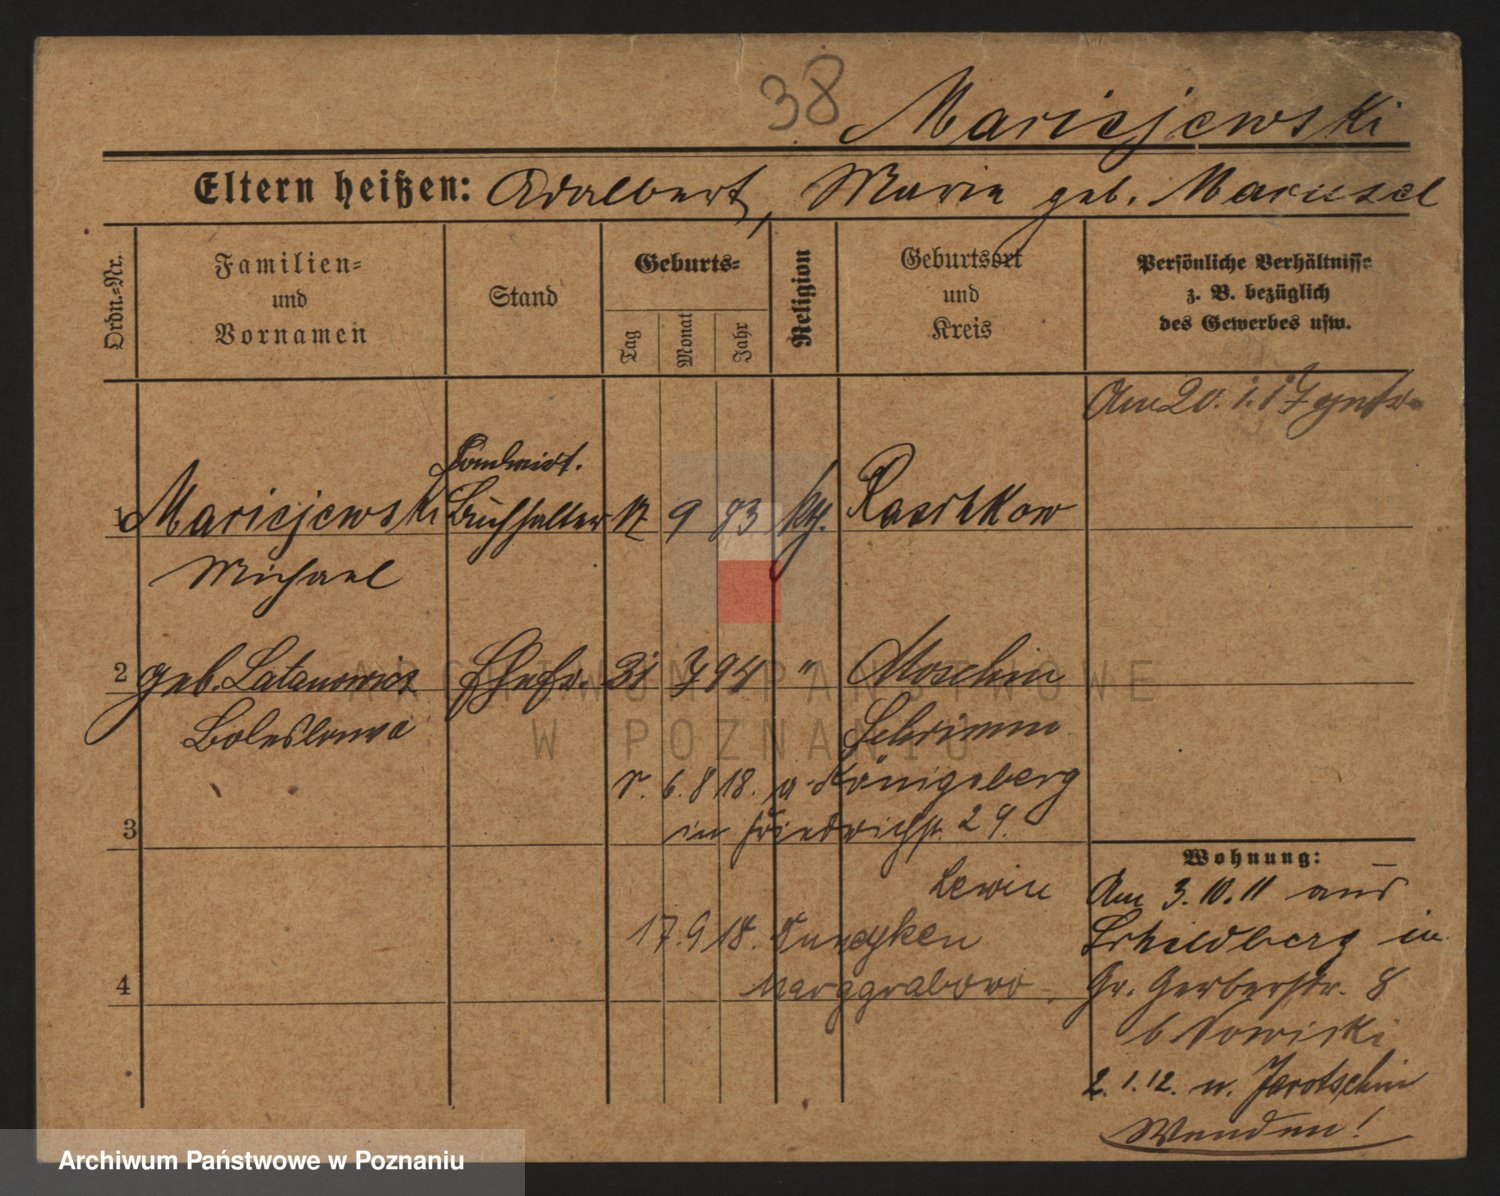 38 Maricjewski
Eltern heißen: Adalbert, Marie geb. Maruscel
Ordn.=Nr.
Familien=
und
Vornamen
Stand
Geburts=
Tag
Monat
Jahr
Religion
Geburtsort
und
Kreis
Persönliche Verhältnisse
z. B. bezüglich
des Gewerbes usw.
Am 20.1.17
Landwirt.
1 Maricjewski Buchhalter 12 9 83 kth. Raschkow
Michael
2 geb. Latanowicz Ehefr. 31 7 94 " Moschin
Boleslawa Schrimm
v. 6.8.18. a Königsberg
in Friedrichstr. 29.
3
Wohnung:
Lewin
Am 3.10.11 aus
17.9.18.
Schildberg in
4 Marggrabowo
Gr. Gerberstr. 8
b Nowicki
2.1.12. n. Jarotschin
Wenden!
ARCHIWUM PAŃSTWOWE
W POZNANIU
Archiwum Państwowe w Poznaniu